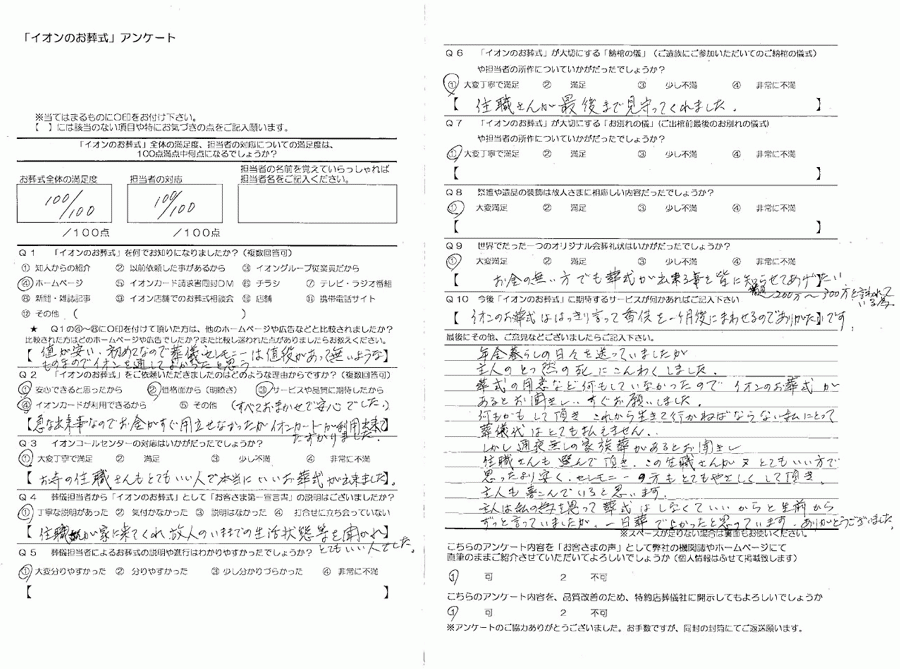 「イオンのお葬式」アンケート
※当てはまるものに○印をお付け下さい。
【 】には該当のない項目や特にお気づきの点をご記入願います。
「イオンのお葬式」全体の満足度、担当者の対応についての満足度は、
100点満点中何点になるでしょうか？
お葬式全体の満足度 担当者の対応 担当者の名前を覚えていらっしゃれば
担当者名をご記入ください。
100/100 100/100
/100点 /100点
Q1 「イオンのお葬式」を何でお知りになりましたか？（複数回答可）
① 知人からの紹介 ② 以前依頼した事があるから ③ イオングループ従業員だから
④ ホームページ ⑤ イオンカード請求書同封DM ⑥ チラシ ⑦ テレビ・ラジオ番組
⑧ 新聞・雑誌記事 ⑨ イオン店舗でのお葬式相談会 ⑩ 店舗 ⑪ 携帯電話サイト
⑫ その他 （ ）
★ Q1の④～⑧に○印を付けて頂いた方は、他のホームページや広告などと比較されましたか？
比較された方はどのホームページや広告でしたか？また比較し選ばれた点がありましたらお教えください。
【値が安い、初めてなので葬儀セレモニーは値段があって迷いような
ものなのでイオンを通してよかったと思う
Q2 「イオンのお葬式」をご依頼いただきましたのはどのような理由からですか？（複数回答可）
① 安心できると思ったから ② 価格面から（明瞭さ） ③ サービスや品質に期待したから
④ イオンカードが利用できるから ⑤ その他 （すべておまかせで安心でした。）
【急な出来事なのでお金がすぐ用立せなかったがイオンカードが利用出来て
たすかりました。】
Q3 イオンコールセンターの対応はいかがだったでしょうか？
① 大変丁寧で満足 ② 満足 ③ 少し不満 ④ 非常に不満
【お寺の住職さんもとてもいい人で本当にいいお葬式が出来ました】
Q4 葬儀担当者から「イオンのお葬式」として「お客さま第一宣言書」の説明はございましたか？
① 丁寧な説明があった ② 気付かなかった ③ 説明はなかった ④ 打合せに立ち会っていない
【住職さんが家に来てくれ故人のいままでの生活状態等を聞かれ
とてもいい人でした。】
Q5 葬儀担当者によるお葬式の説明や進行はわかりやすかったでしょうか？
① 大変分りやすかった ② 分りやすかった ③ 少し分かりづらかった ④ 非常に不満
【 】
Q6 「イオンのお葬式」が大切にする「納棺の儀」（ご遺族にご参加いただいてのご納棺の儀式）
や担当者の所作についていかがだったでしょうか？
① 大変丁寧で満足 ② 満足 ③ 少し不満 ④ 非常に不満
【 住職さんが最後まで見守ってくれました。 】
Q7 「イオンのお葬式」が大切にする「お別れの儀」（ご出棺前最後のお別れの儀式）
や担当者の所作についていかがだったでしょうか？
① 大変丁寧で満足 ② 満足 ③ 少し不満 ④ 非常に不満
【 】
Q8 祭壇や遺品の装飾は故人さまに相応しい内容だったでしょうか？
① 大変満足 ② 満足 ③ 少し不満 ④ 非常に不満
【 】
Q9 世界でたった一つのオリジナル会葬礼状はいかがだったでしょうか？
① 大変満足 ② 満足 ③ 少し不満 ④ 非常に不満
【 お金の無い方でも葬式が出来る事を皆に知らせてあげたい
200万～300万を言われている為
Q10 今後「イオンのお葬式」に期待するサービスが何かあればご記入下さい
【イオンのお葬式ははっきり言って香供を一ヶ月後にまわせるのでありがたいです。
最後にその他、ご意見などございましたらご記入下さい。
年金暮らしの日々を送っていましたが
主人のとつ然の死にこんわくしました。
葬式の用意など何もしていなかったので イオンのお葬式が
あるとお聞きし、すぐお願いしました。
何もかもして頂き これから生きて行かねばならない私にとって
葬儀代はとても払えません。
しかし通夜無しの家族葬があるとお聞きし
住職さんも選んで頂き、この住職さんが又とてもいい方で
思ったより安く、セレモニーの方もとてもやさしくして頂き、
主人も喜こんでいると思います。
主人は私の先を思って葬式はしなくていいからと生前から
ずっと言っていましたが、一日葬でよかったと思っています。ありがとうございました。
※スペースが足りない場合は裏面もお使いください。
こちらのアンケート内容を「お客さまの声」として弊社の機関誌やホームページにて
直筆のままご紹介させていただいてよろしいでしょうか（個人情報はふせて掲載致します）
1 可 2 不可
こちらのアンケート内容を、品質改善のため、特約店葬儀社に開示してもよろしいでしょうか
1 可 2 不可
※アンケートのご協力ありがとうございました。お手数ですが、同封の封筒にてご返送願います。